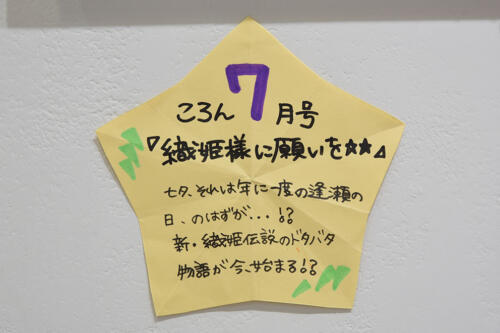 ころん7月号
『織姫様に願いを☆★』
七夕、それは年に一度の逢瀬の
日、のはずが...!?
新・織姫伝説のドタバタ
物語が今、始まる!?